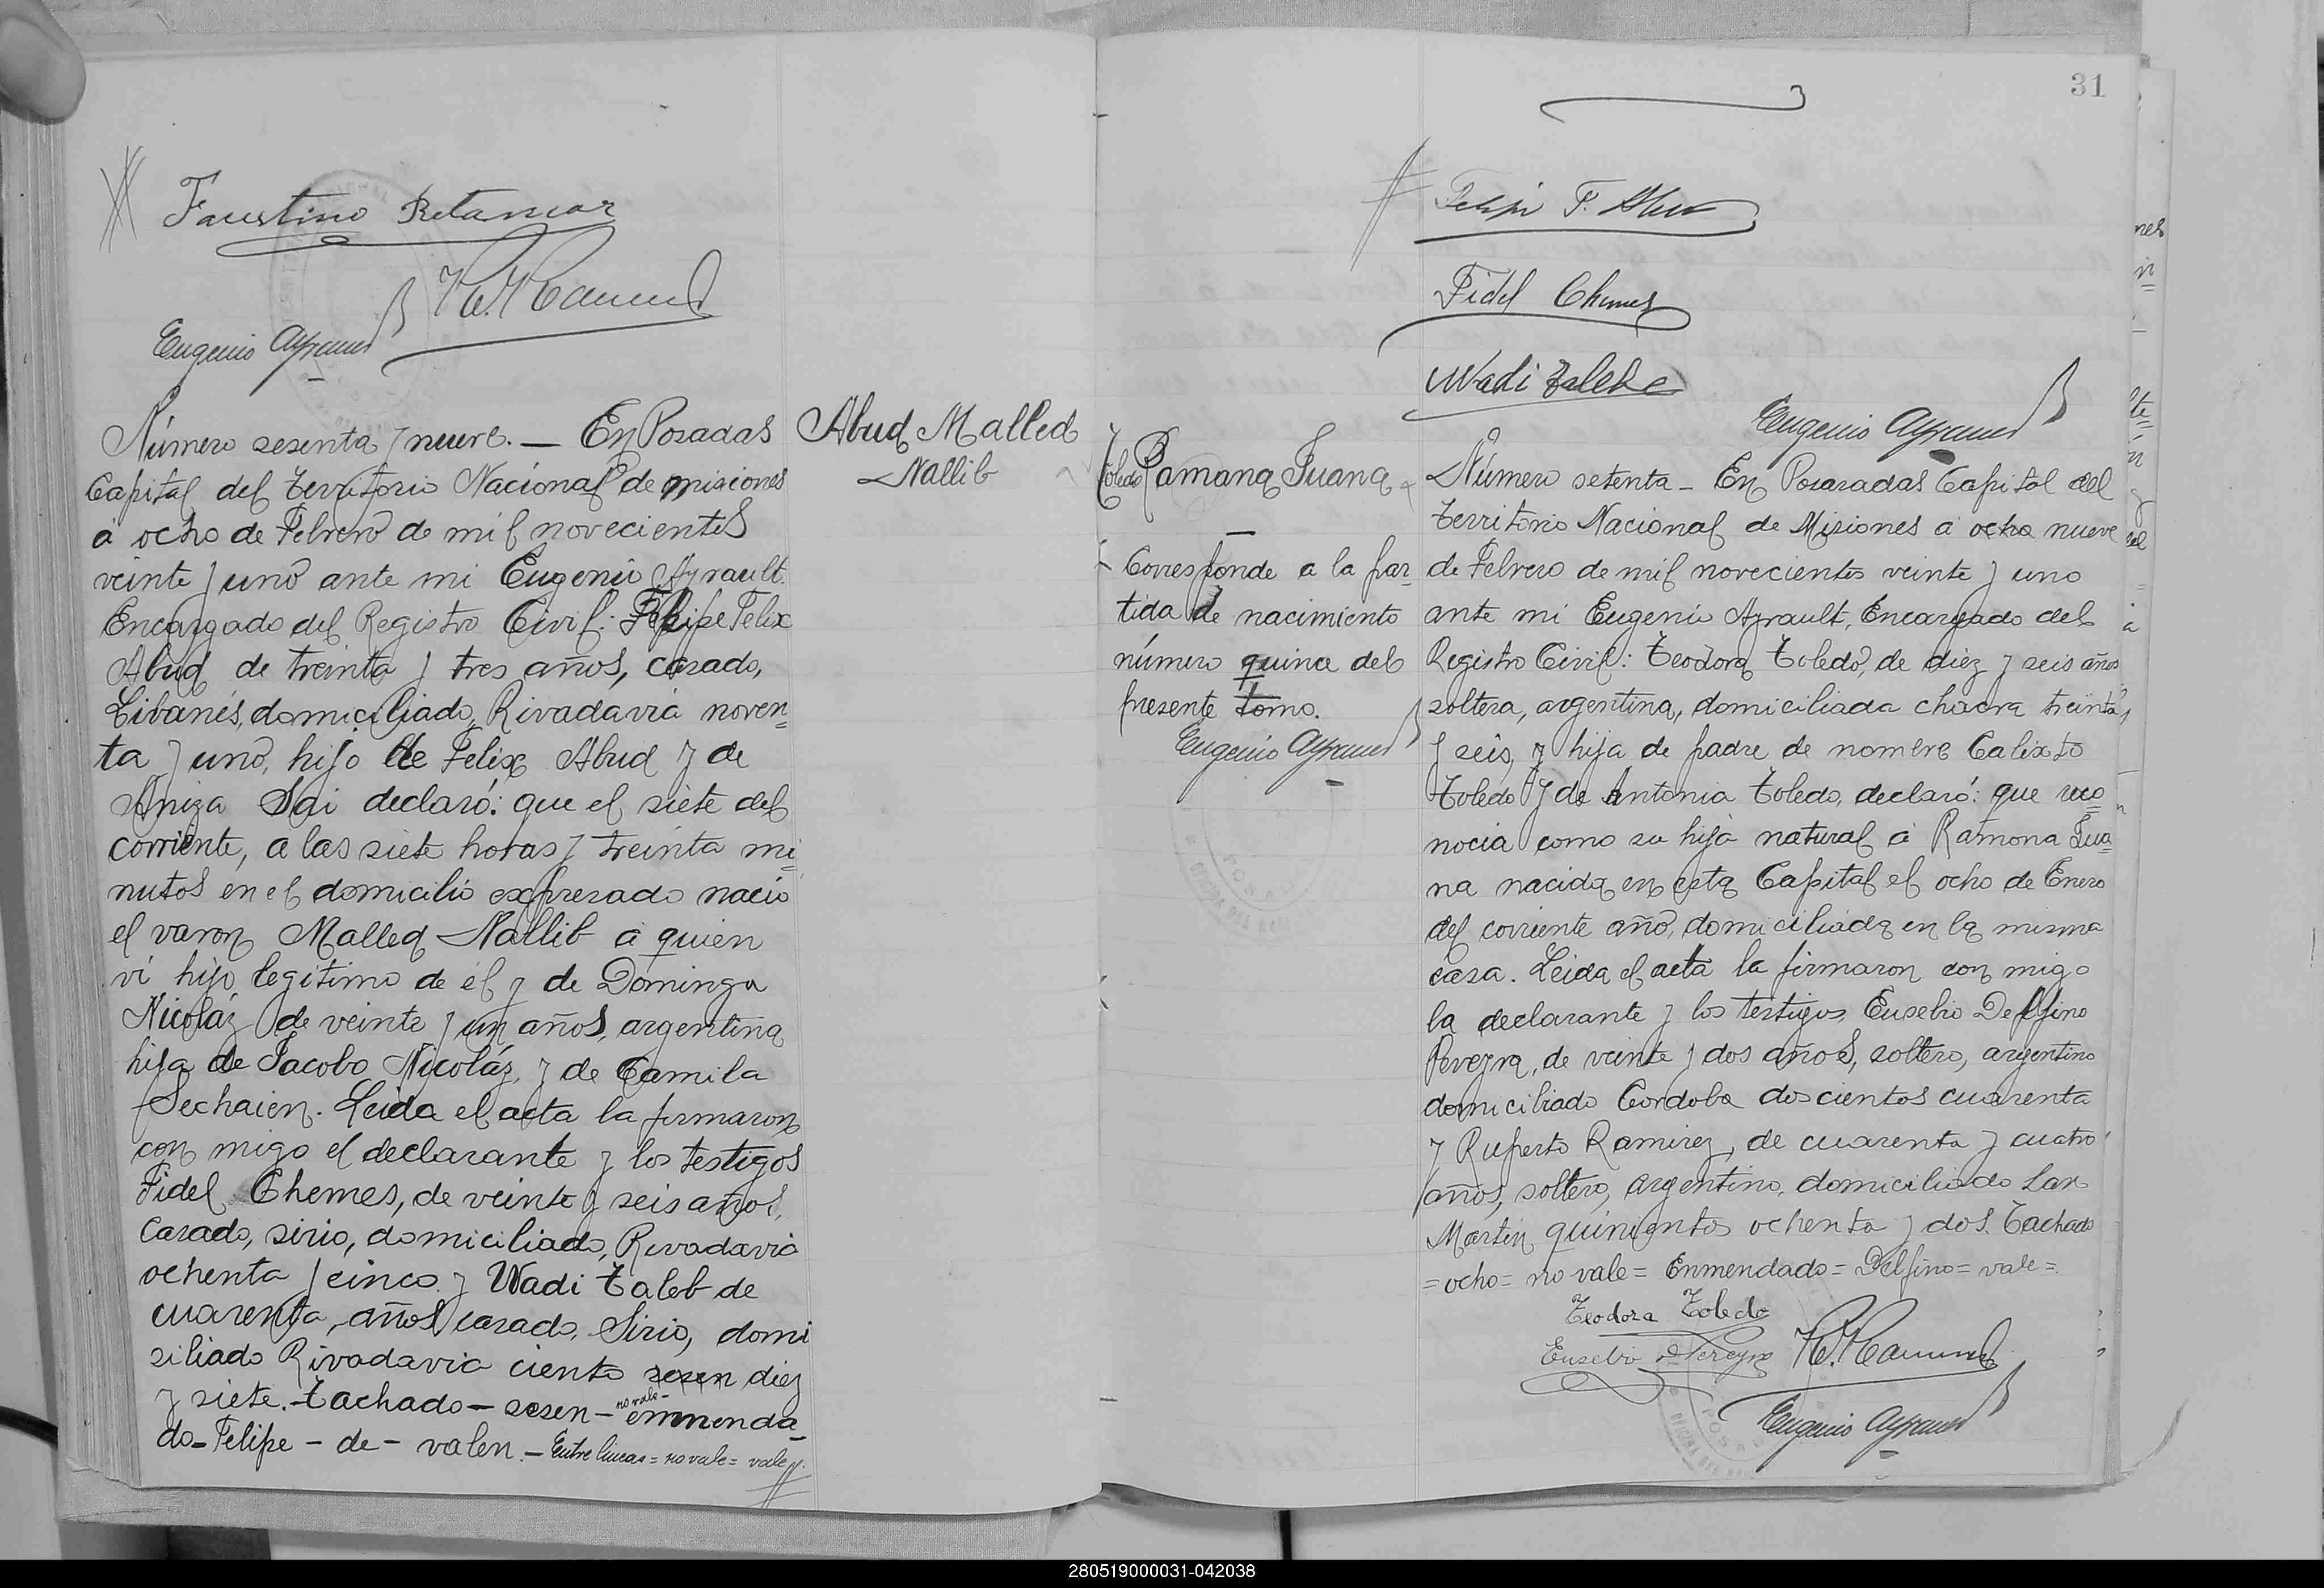 Faustino Retamar
Eugenio Ayrault
Número sesenta y nueve. — En Posadas
Capital del Territorio Nacional de misiones
á ocho de Febrero de mil novecientos
veinte y uno ante mi Eugenio Ayrault
Encargado del Registro Civil: Felipe Felix
Abud de treinta y tres años, casado,
Libanés, domiciliado, Rivadavia noven=
ta y uno, hijo de Felix Abud y de
Aniza Sai declaró: que el siete del
corriente, a las siete horas y treinta mi=
nutos en el domicilio expresado nacio
el varon Malled Nallib á quien
vi hijo legitimo de él y de Dominga
Nicoláz de veinte y un años, argentina
hija de Jacobo Nicoláz, y de Camila
Sechaien. Leida el acta la firmaron
con migo el declarante y los testigos
Fidel Chemes, de veinte y seis años,
casado, sirio, domiciliado, Rivadavia
ochenta y cinco y Wadi Taleb de
cuarenta, años casado, Sirio, domi
siliado Rivadavia ciento sesen diez
y siete. Tachado — sesen — no vale — enmenda=
do — Felipe — de — valen. — Entre lineas = no vale = vale.
Abud Malled
Nallib
31
Felipe F. Abud
Fidel Chemes
Wadi Talebe
Eugenio Ayrault
Toledo Ramona Juana
Corresponde a la par=
tida de nacimiento
número quince del
presente tomo.
Eugenio Ayrault
Número setenta — En Posaradas Capital del
Territorio Nacional de Misiones á ocho nueve
de Febrero de mil novecientos veinte y uno
ante mi Eugenio Ayrault, Encargado del
Registro Civil: Teodora Toledo, de diez y seis años
soltera, argentina, domiciliada chacra treinta
y seis, y hija de padre de nombre Calixto
Toledo y de Antonia Toledo, declaró: que reco=
nocia como su hija natural á Ramona Jua=
na nacida en esta Capital el ocho de Enero
del corriente año, domiciliada en la misma
casa. Leida el acta la firmaron con migo
la declarante y los testigos, Eusebio Delfino
Pereyra, de veinte y dos años, soltero, argentino
domiciliado Cordoba doscientos cuarenta
y Ruperto Ramirez, de cuarenta y cuatro
años, soltero, argentino, domiciliado San
Martin quinientos ochenta y dos. Tachado
= ocho = no vale = Enmendado = Delfino = vale =
Teodora Toledo
Eusebio D Pereyra
Eugenio Ayrault
280519000031-042038